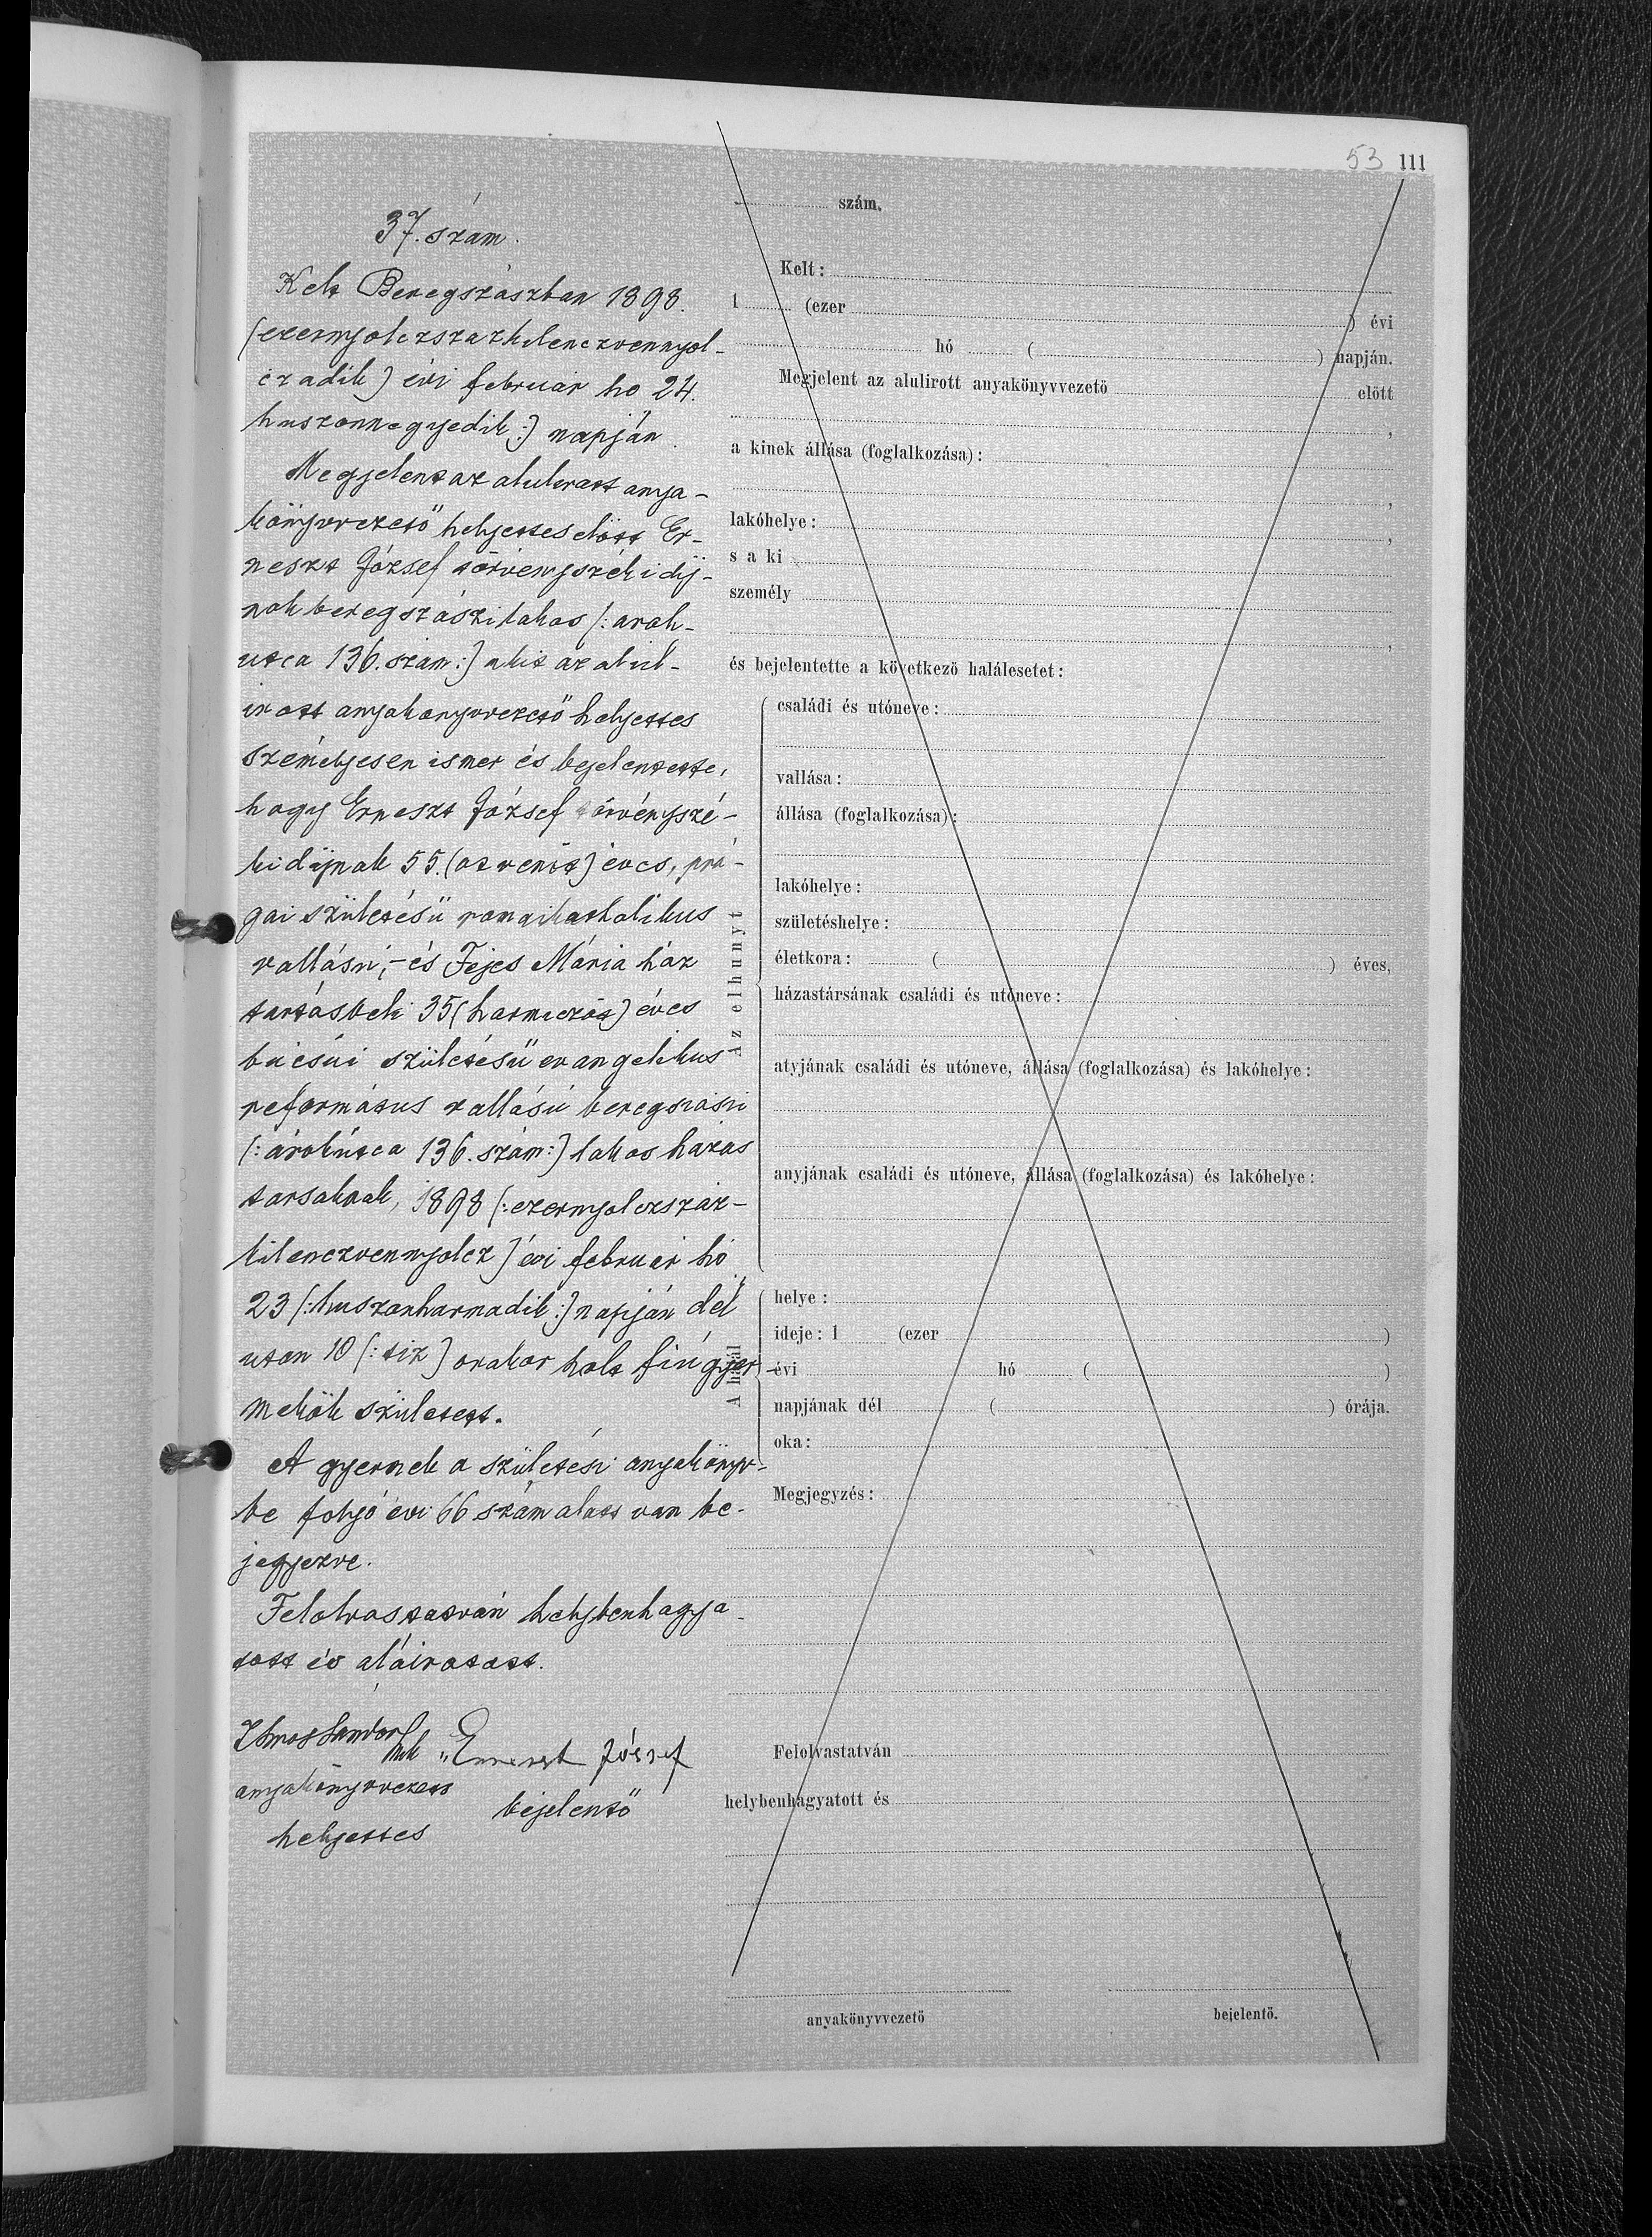 53 111
37. szám.
Kelt Beregszászban 1898.
(ezernyolczszázkilenczvennyol-
czadik) évi február hó 24.
huszonnegyedik:) napján.
Megjelent az alulirott anya-
könyvvezető helyettes előtt Er-
neszt József törvényszéki díj-
nok beregszászi lakos (: árok-
utca 136. szám:) akit az alul-
irott anyakönyvvezető helyettes
személyesen ismer és bejelentette,
hogy Erneszt József törvényszé-
ki díjnok 55. (ötvenöt) éves, prá-
gai születésü romai katholikus
vallásu,- és Fejes Mária ház
tartásbeli 35 (harminczöt) éves
búcsúi születésü evangelikus
református vallású beregszászi
(: árokútca 136. szám:) lakos házas
társaknak, 1898 (: ezernyolczszáz-
kilenczvennyolcz) évi február hó
23 (: huszonharmadik :) napján dél
utan 10 (: tiz) orakor holt fiú gyer-
mekök született.
A gyermek a születési anyakönyv-
be folyó évi 66 szám alatt van be-
jegyezve.
Felolvastatván helybenhagya-
tott és aláiratott.
Sándor
anyakönyvvezető
helyettes
Erneszt József
bejelentő
szám.
Kelt:
1 (ezer ) évi
hó ( ) napján.
Megjelent az alulirott anyakönyvvezető előtt
,
a kinek állása (foglalkozása):
,
lakóhelye: ,
s a ki
személy
,
és bejelentette a következő halálesetet:
Az elhunyt
családi és utóneve:
vallása:
állása (foglalkozása):
lakóhelye:
születéshelye:
életkora: ( ) éves,
házastársának családi és utóneve:
atyjának családi és utóneve, állása (foglalkozása) és lakóhelye:
anyjának családi és utóneve, állása (foglalkozása) és lakóhelye:
A halál
helye:
ideje: 1 (ezer )
évi hó ( )
napjának dél ( ) órája.
oka:
Megjegyzés:
Felolvastatván
helybenhagyatott és
anyakönyvvezető bejelentő.